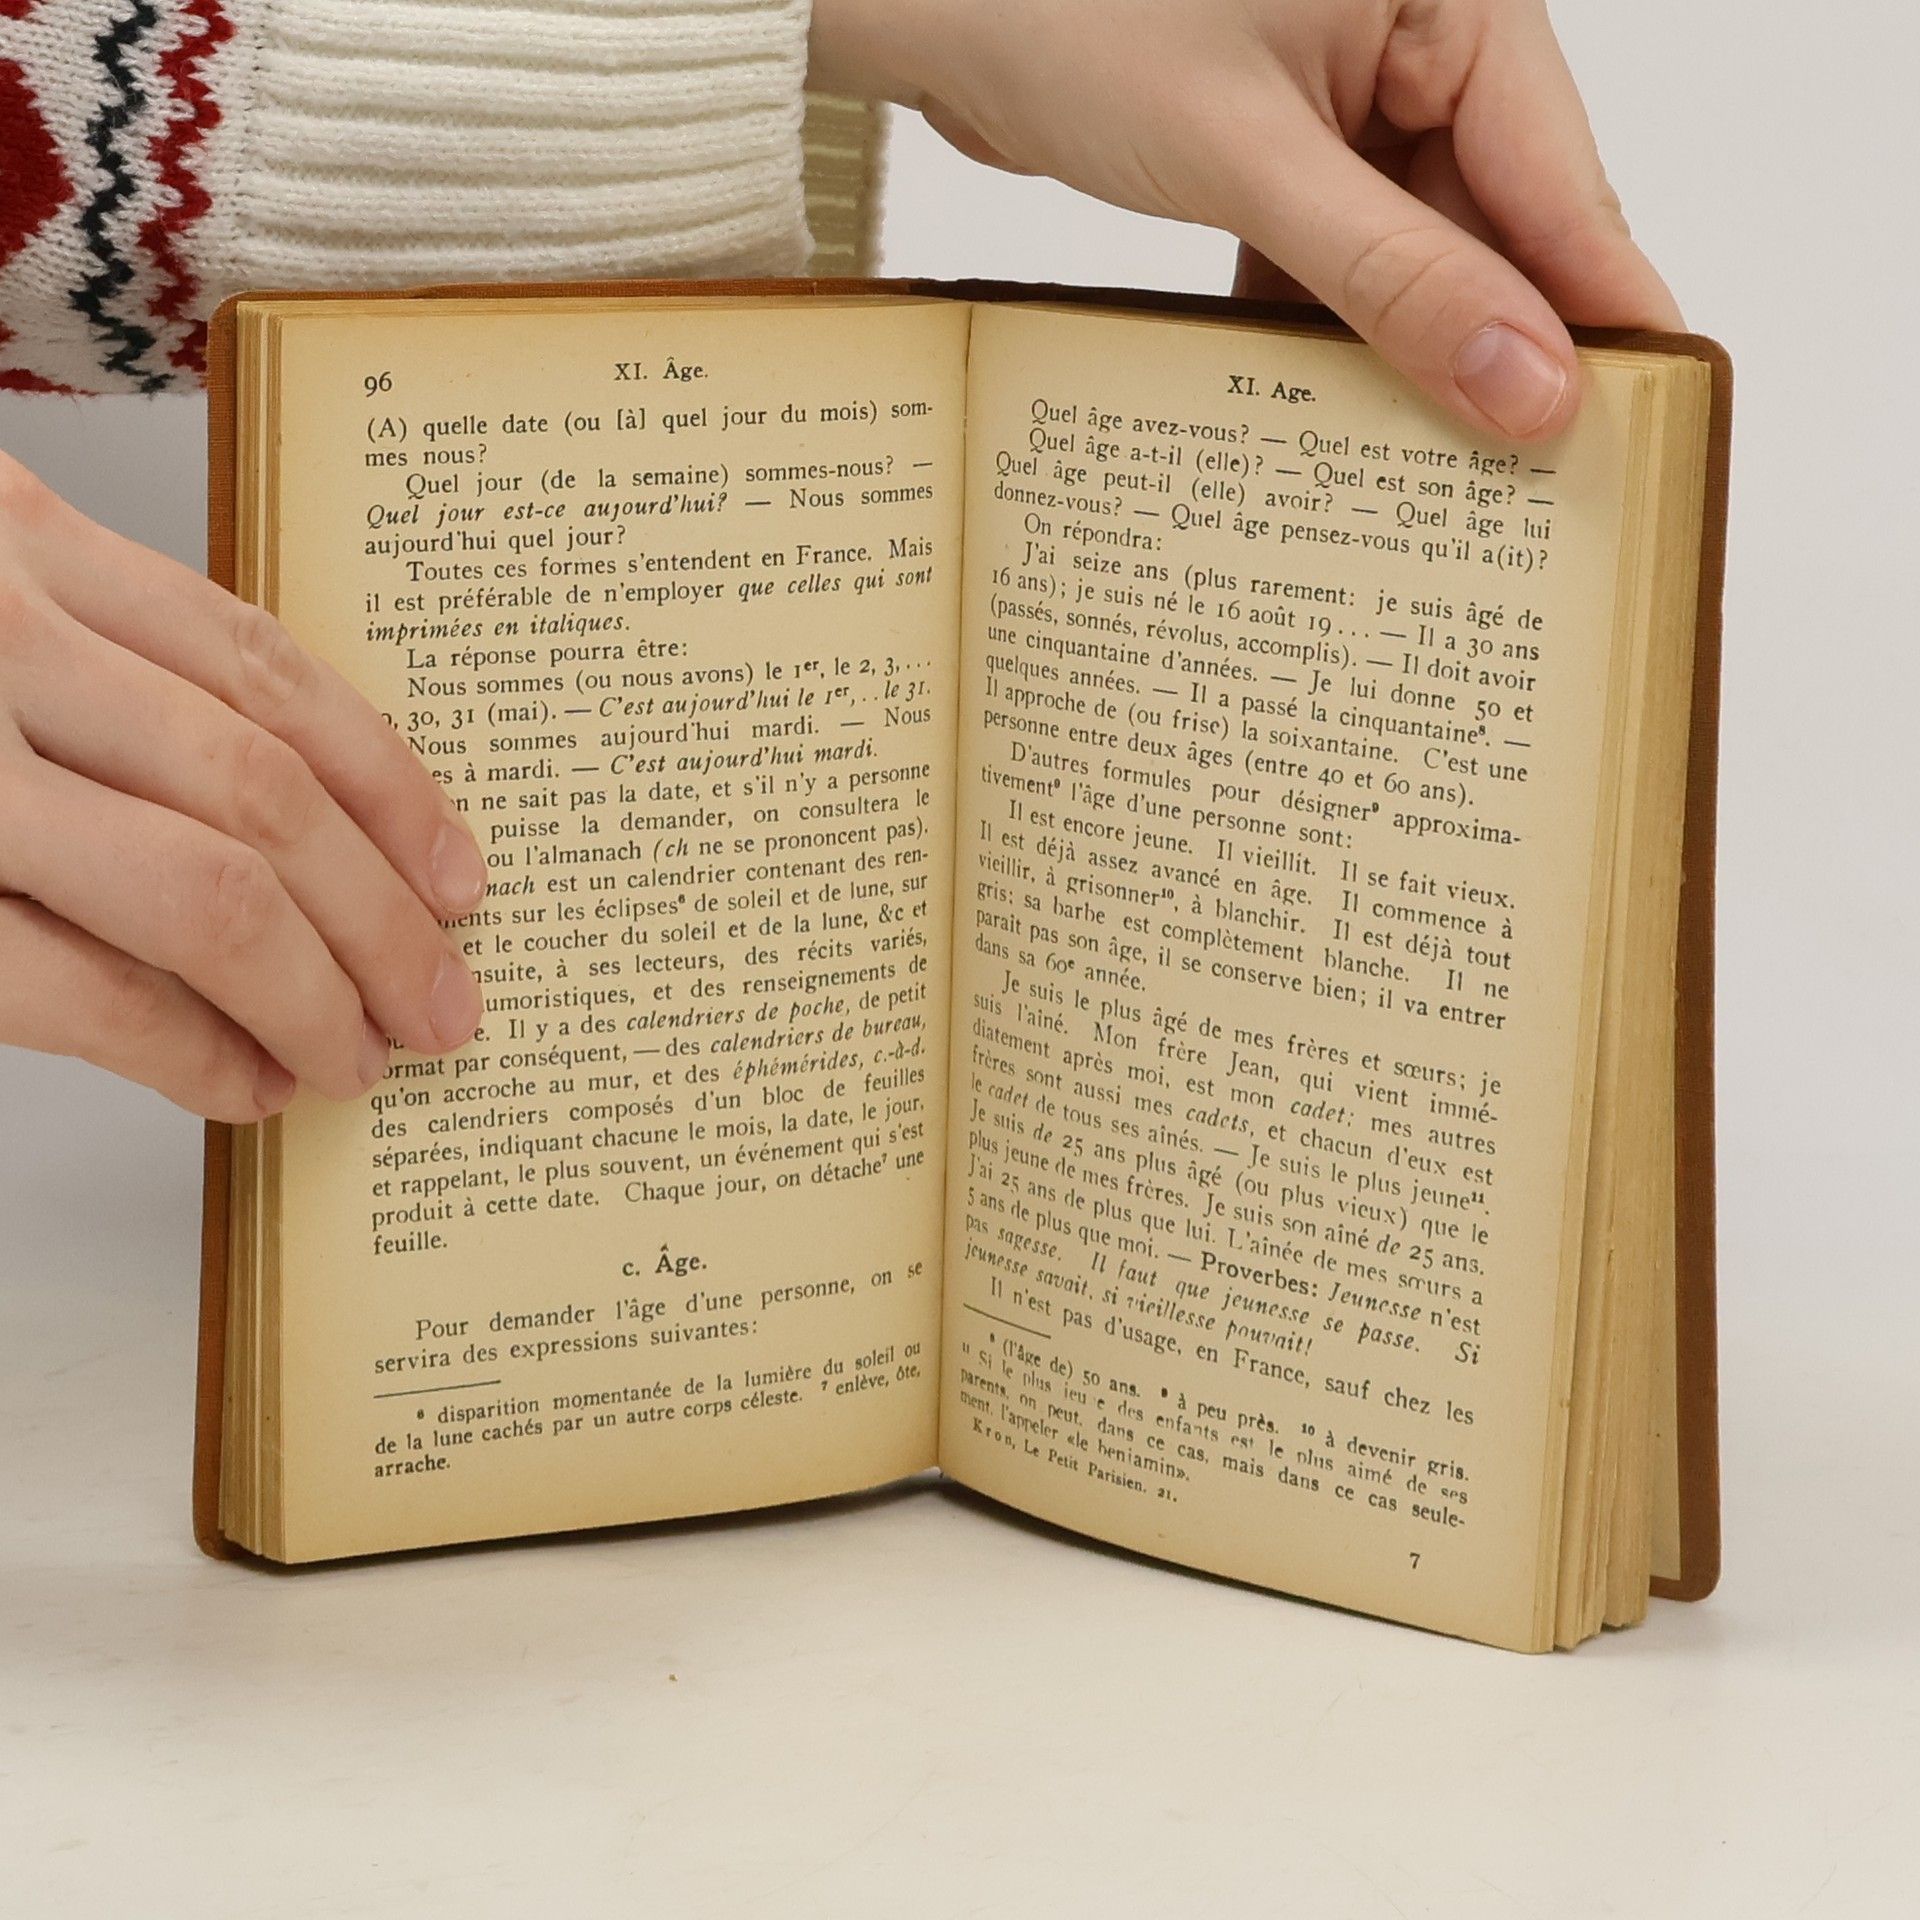 96
XI. Âge.
(A) quelle date (ou [à] quel jour du mois) som-
mes nous?
Quel jour (de la semaine) sommes-nous? —
Quel jour est-ce aujourd'hui? — Nous sommes
aujourd'hui quel jour?
Toutes ces formes s'entendent en France. Mais
il est préférable de n'employer que celles qui sont
imprimées en italiques.
La réponse pourra être:
Nous sommes (ou nous avons) le 1er, le 2, 3,...
30, 31 (mai). — C'est aujourd'hui le 1er,.. le 31.
Nous sommes aujourd'hui mardi. — Nous
à mardi. — C'est aujourd'hui mardi.
ne sait pas la date, et s'il n'y a personne
puisse la demander, on consultera le
ou l'almanach (ch ne se prononcent pas).
est un calendrier contenant des ren-
sur les éclipses⁶ de soleil et de lune, sur
et le coucher du soleil et de la lune, &c et
à ses lecteurs, des récits variés,
et des renseignements de
Il y a des calendriers de poche, de petit
format par conséquent, — des calendriers de bureau,
qu'on accroche au mur, et des éphémérides, c.-à-d.
des calendriers composés d'un bloc de feuilles
séparées, indiquant chacune le mois, la date, le jour,
et rappelant, le plus souvent, un événement qui s'est
produit à cette date. Chaque jour, on détache⁷ une
feuille.
c. Âge.
Pour demander l'âge d'une personne, on se
servira des expressions suivantes:
⁶ disparition momentanée de la lumière du soleil ou
de la lune cachés par un autre corps céleste. ⁷ enlève, ôte,
arrache.
XI. Age.
Quel âge avez-vous? — Quel est votre âge? —
Quel âge a-t-il (elle)? — Quel est son âge? —
Quel âge peut-il (elle) avoir? — Quel âge lui
donnez-vous? — Quel âge pensez-vous qu'il a(it)?
On répondra:
J'ai seize ans (plus rarement: je suis âgé de
16 ans); je suis né le 16 août 19... — Il a 30 ans
(passés, sonnés, révolus, accomplis). — Il doit avoir
une cinquantaine d'années. — Je lui donne 50 et
quelques années. — Il a passé la cinquantaine⁸. —
Il approche de (ou frise) la soixantaine. C'est une
personne entre deux âges (entre 40 et 60 ans).
D'autres formules pour désigner⁹ approxima-
tivement⁹ l'âge d'une personne sont:
Il est encore jeune. Il vieillit. Il se fait vieux.
Il est déjà assez avancé en âge. Il commence à
vieillir, à grisonner¹⁰, à blanchir. Il est déjà tout
gris; sa barbe est complètement blanche. Il ne
paraît pas son âge, il se conserve bien; il va entrer
dans sa 60e année.
Je suis le plus âgé de mes frères et sœurs; je
suis l'aîné. Mon frère Jean, qui vient immé-
diatement après moi, est mon cadet; mes autres
frères sont aussi mes cadets, et chacun d'eux est
le cadet de tous ses aînés. — Je suis le plus jeune¹¹.
Je suis de 25 ans plus âgé (ou plus vieux) que le
plus jeune de mes frères. Je suis son aîné de 25 ans.
J'ai 25 ans de plus que lui. L'aînée de mes sœurs a
5 ans de plus que moi. — Proverbes: Jeunesse n'est
pas sagesse. Il faut que jeunesse se passe. Si
jeunesse savait, si vieillesse pouvait!
Il n'est pas d'usage, en France, sauf chez les
⁸ (l'âge de) 50 ans. ⁹ à peu près. ¹⁰ à devenir gris.
¹¹ Si le plus jeune des enfants est le plus aimé de ses
parents, on peut, dans ce cas, mais dans ce cas seule-
ment, l'appeler «le benjamin».
Kron, Le Petit Parisien. 21.
7